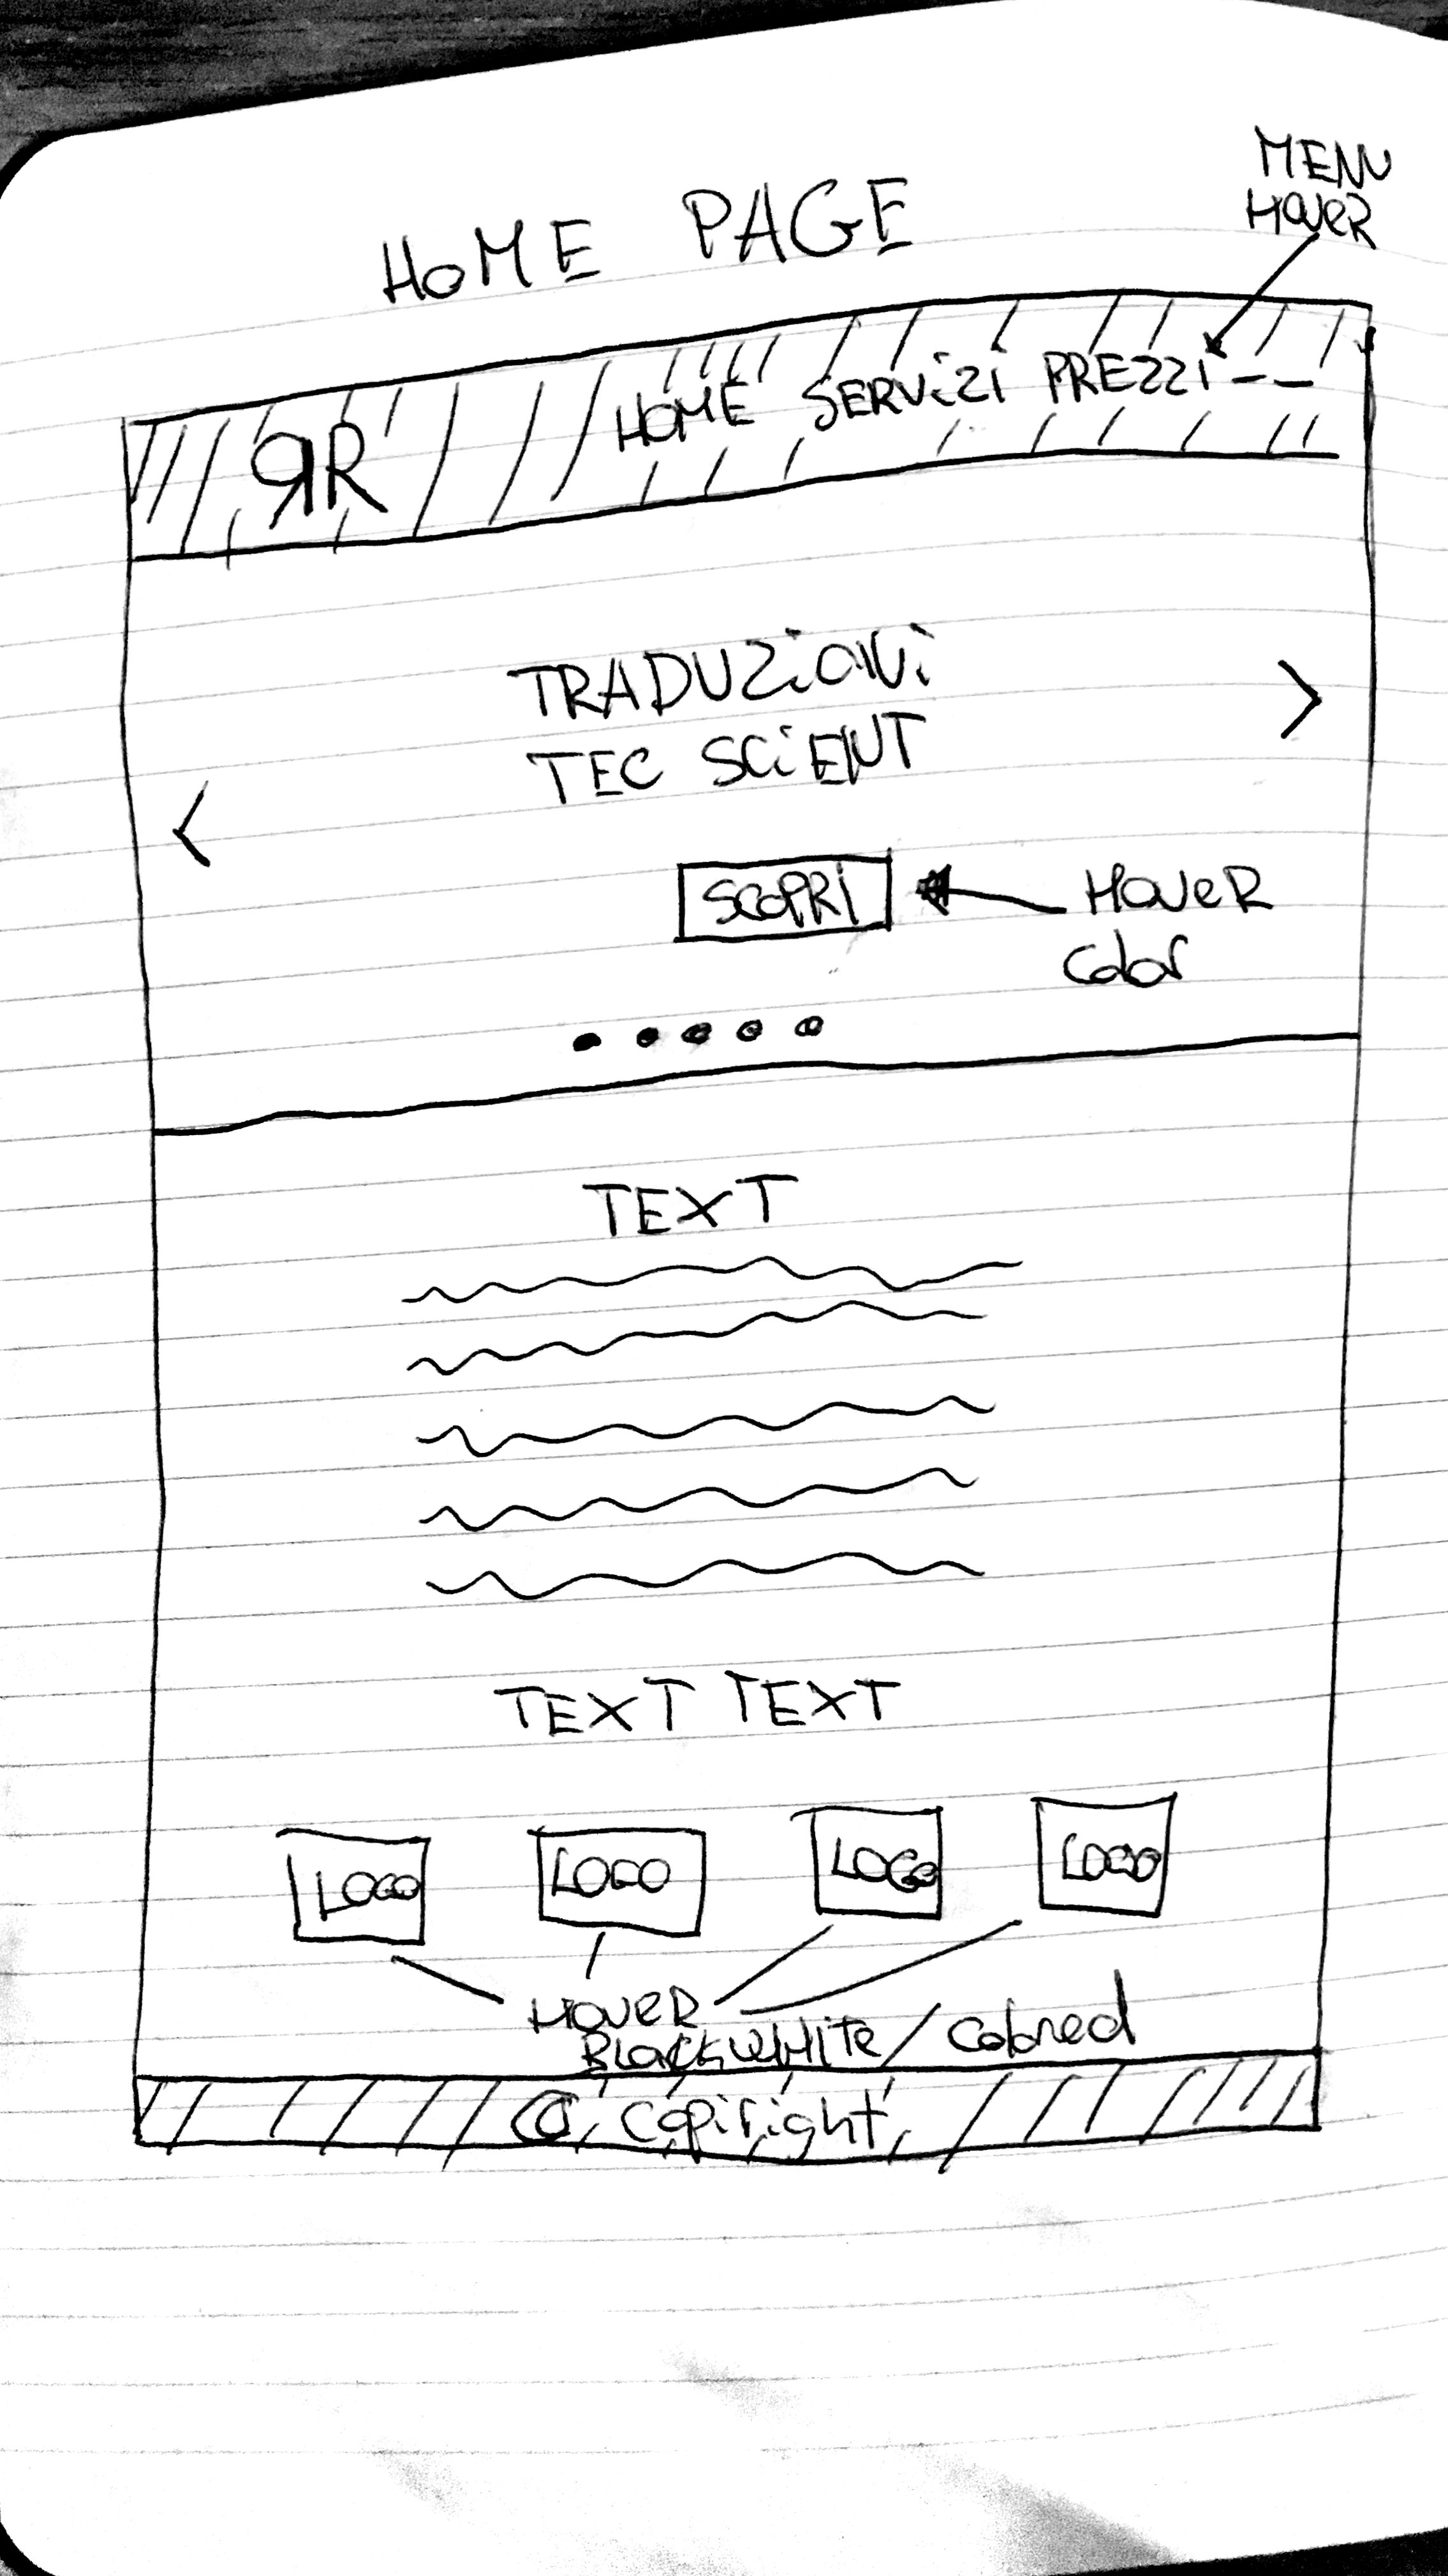 HOME PAGE
MENU
HOVER
ЯR HOME SERVIZI PREZZI --
TRADUZIONI
TEC SCIENT
< >
SCOPRI
HOVER
Color
TEXT
TEXT TEXT
LOGO LOGO LOGO LOGO
HOVER
BLACKWHITE/Colored
© Copiright